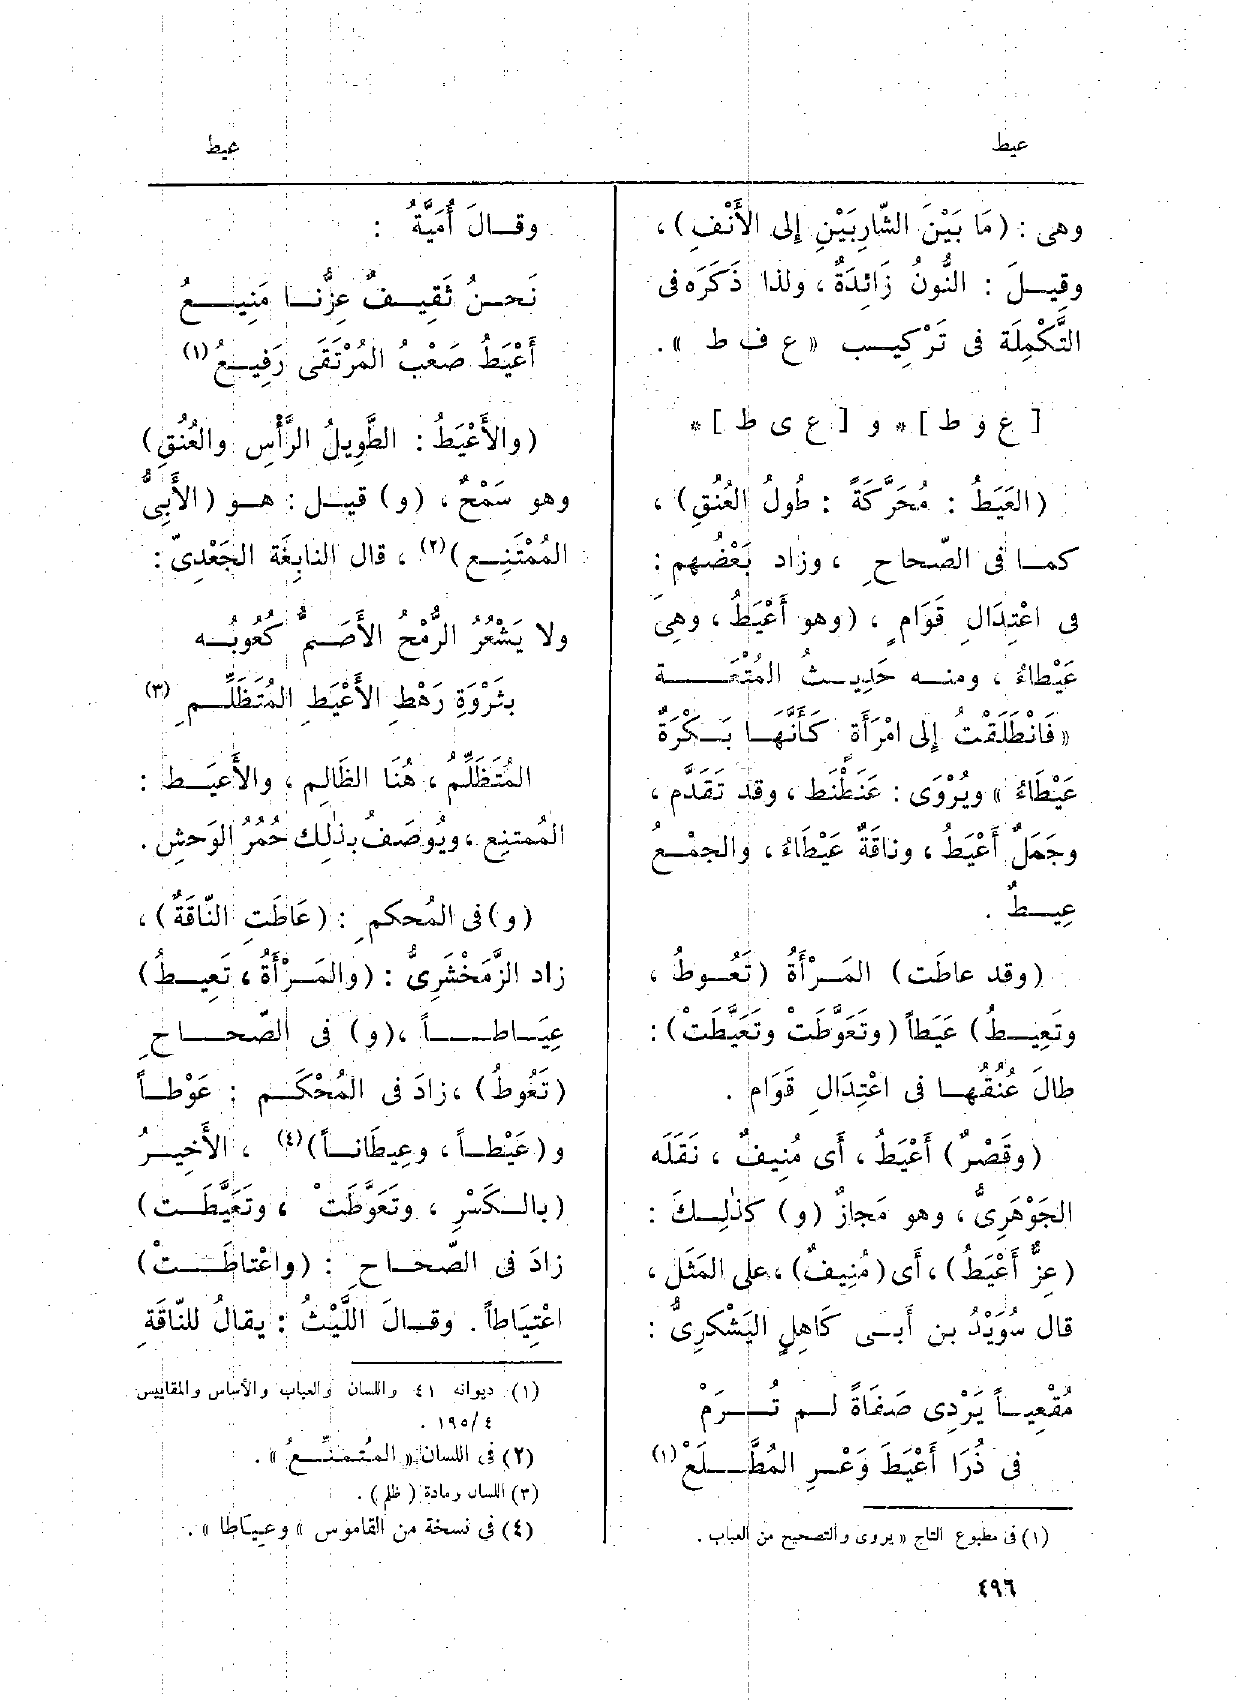 عيط
عيط
وهى : (مَا بَيْنَ الشَّارِبَيْنِ إلى الأَنْفِ) ،
وقِيـلَ : النُّونُ زَائِدَةٌ ، ولذا ذَكَرَه فى
التَّكْمِلَة فى تَرْكِيـب « ع ف ط » .
[ ع و ط ]* و [ ع ى ط ]*
(العَيَطُ : مُحَرَّكَةً : طولُ العُنُقِ) ،
كمـا فى الصّحاحِ ، وزاد بَعْضُهم :
فى اعْتِدَالِ قَوَامٍ ، (وهو أَعْيَطُ ، وهِىَ
عَيْطاءُ ، ومنـه حَدِيـثُ المُتْعَـــة
« فَانْطَلَقْتُ إلى امْرَأَةٍ كَأَنَّهَـا بَـكْرَةٌ
عَيْطَاءُ » ويُرْوَى : عَنَطْنَط ، وقد تَقَدَّم ،
وجَمَلٌ أَعْيَطُ ، وناقَةٌ عَيْطَاءُ ، والجمْـع
عِيـطٌ .
(وقد عاطَت) المَـرْأَةُ (تَعُـوطُ ،
وتَعِيـطُ) عَيَطاً (وتَعَوَّطَتْ وتَعَيَّطَتْ) :
طالَ عُنُقُهـا فى اعْتِدَالِ قَوَام .
(وقَصْرٌ) أَعْيَطُ ، أَى مُنِيفٌ ، نَقَلَه
الجَوْهَرِىُّ ، وهو مَجازٌ (و) كذٰلِـكَ :
(عِزٌّ أَعْيَطُ) ، أَى (مُنِيفٌ) ، على المَثَل ،
قال سُوَيْدُ بن أَبـى كَاهِلٍ اليَشْكرِىُّ :
مُقْعِيـاً يَرْدِى صَفَاةً لـم تُـــرَمْ
فى ذُرَا أَعْيَطَ وَعْـرِ المُطَّـلَعْ (١)
(١) فى مطبوع التاج « يروى والتصحيح من العباب .
وقـالَ أُمَيَّةُ :
نَحـنُ ثَقِيـفٌ عِزُّنـا مَنِيـع
أَعْيَطُ صَعْبُ المُرْتَقَى رَفِيـعُ (١)
(والأَعْيَطُ : الطَّوِيلُ الرَّأْسِ والعُنُقِ)
وهو سَمْحٌ ، (و) قيـل : هـو (الأَبِىُّ
المُمْتَنِـع) (٢) ، قال النابِغَة الجَعْدِىّ :
ولا يَشْعُرُ الرُّمْحُ الأَصَـمُّ كُعُوبُـه
بثَرْوَةِ رَهْطِ الأَعْيَطِ المُتَظَلِّـمِ (٣)
المُتَظَلِّمُ ، هُنَا الظَالِم ، والأَعيَـط :
المُمتنِع ، ويُوصَفُ بذٰلك حُمُرُ الوَحشِ .
(و) فى المُحكمِ : (عَاطَتِ النّاقَةُ) ،
زاد الزَّمَخْشَرِىُّ : (والمَـرْأَةُ ، تَعيـطُ)
عِيَـاطـــاً ، (و) فى الصّحـــاحِ
(تَعُوطُ) ، زادَ فى المُحْكَـم : عَوْطـاً
و (عَيْطـاً ، وعِيطَانـاً) (٤) ، الأَخِيـرُ
(بالـكَسْرِ ، وتَعَوَّطَتْ ، وتَعَيَّطَـت)
زادَ فى الصّحـاحِ : (واعْتاطَــتْ)
اعْتِيَاطاً . وقـالَ اللَّيْثُ : يقالُ للنّاقَةِ
(١) ديوانه ٤١ واللسان والعباب والأساس والمقاييس
٤/١٩٥ .
(٢) فى اللسان « المُتَمنِّـعُ » .
(٣) اللسان ومادة ( ظلم ) .
(٤) فى نسخة من القاموس « وعيَاطا » .
٤٩٦